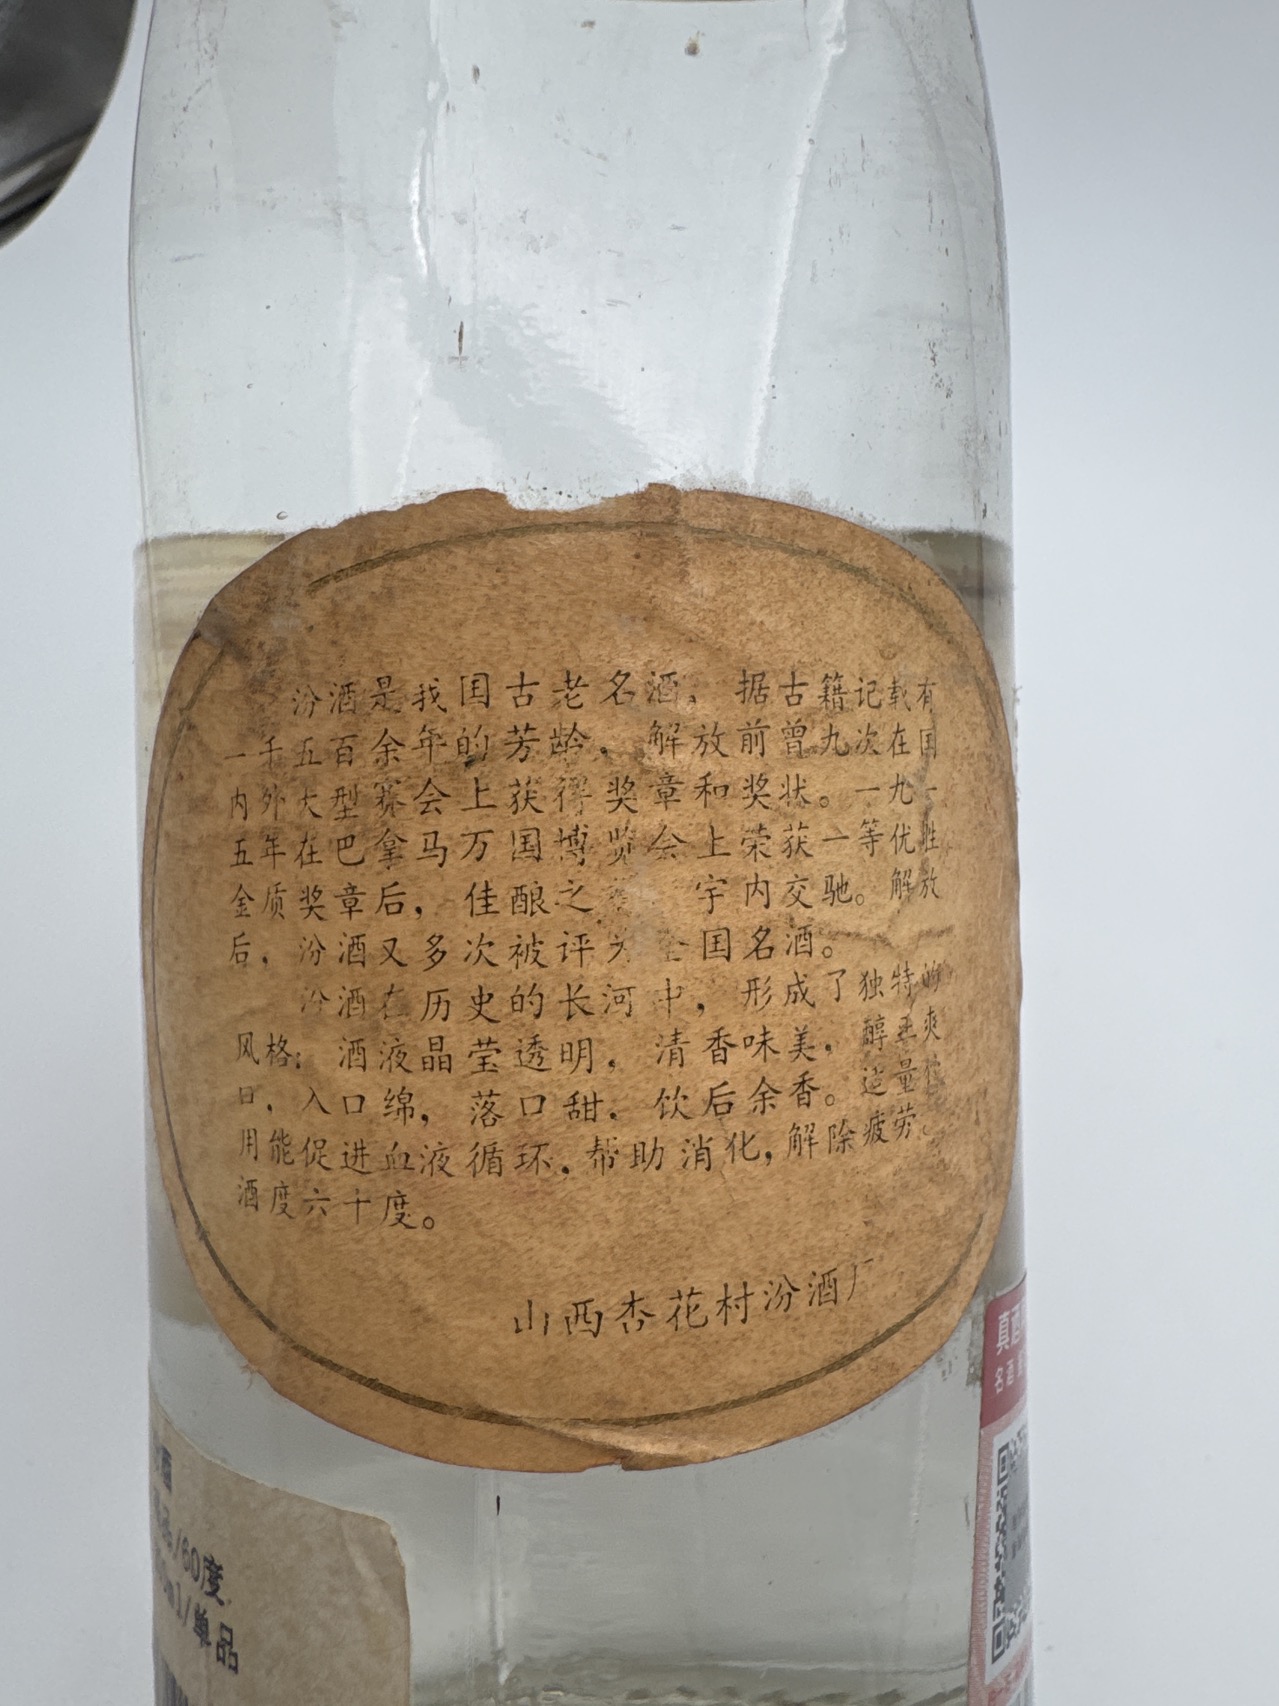 汾酒是我国古老名酒，据古籍记载有
一千五百余年的芳龄。解放前曾九次在国
内外大型赛会上获得奖章和奖状。一九一
五年在巴拿马万国博览会上荣获一等优胜
金质奖章后，佳酿之 宇内交驰。解放
后，汾酒又多次被评为全国名酒。
汾酒在历史的长河中，形成了独特的
风格：酒液晶莹透明，清香味美，醇 爽
口，入口绵，落口甜，饮后余香。适量
用能促进血液循环，帮助消化，解除疲劳。
酒度六十度。
山西杏花村汾酒厂
酒
/60度
ml/单品
真酒
名酒